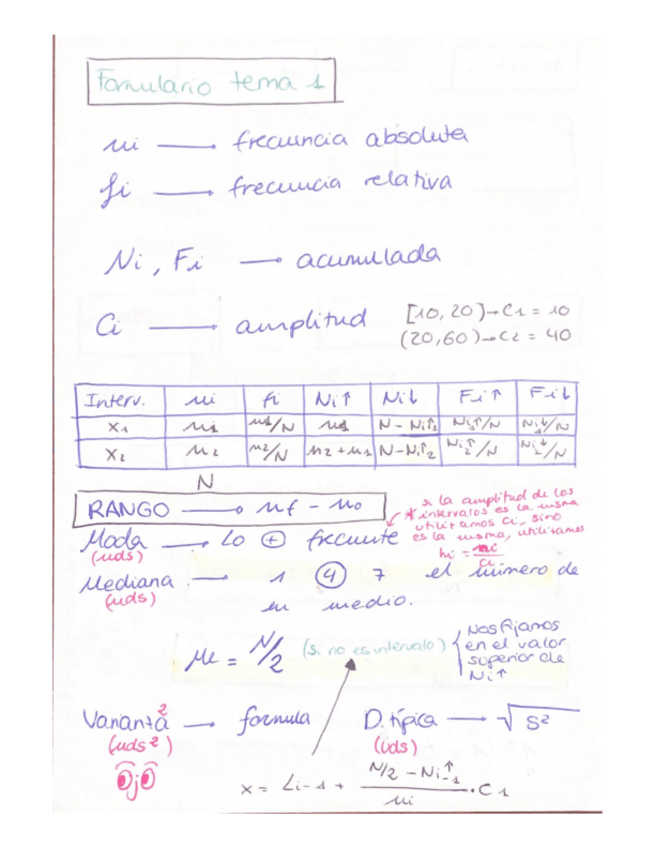 Formulario tema 1
ni → frecuencia absoluta
fi → frecuencia relativa
Ni, Fi → acumulada
Ci → amplitud
[10, 20] → C1 = 10
(20, 60) → C2 = 40
Interv. ni fi Ni↑ Ni↓ Fi↑ Fi↓
X1 n1 n1/N n1 N - Ni↑1 Ni↑1/N Ni↓1/N
X2 n2 n2/N n2 + n1 N - Ni↑2 Ni↑2/N Ni↓2/N
N
RANGO → nf - no
* si la amplitud de los
intervalos es la misma
utilizamos Ci, sino
es la misma, utilizamos
hi = ni/Ci
Moda → Lo ⊕ frecuente
(uds)
Mediana → 1 ④ 7 el número de
(uds)
en medio.
Me = N/2 (si no es intervalo)
{ Nos fijamos
en el valor
superior de
Ni↑
Varianza² → formula
(uds²)
D. típica → √S²
(uds)
OjO
x = Li-1 + (N/2 - Ni↑-1)/ni · C1